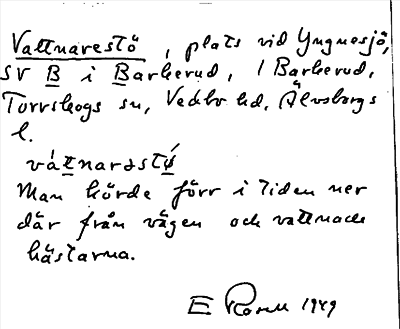 Vattnarestö, plats vid Yngnesjö,
SV B i Barkerud, 1 Barkerud,
Torrskogs sn, Vedbo hd, Älvsborgs
l.
váttnarastǿ
Man körde förr i tiden ner
där från vägen och vattnade
hästarna.
E Rosell 1949